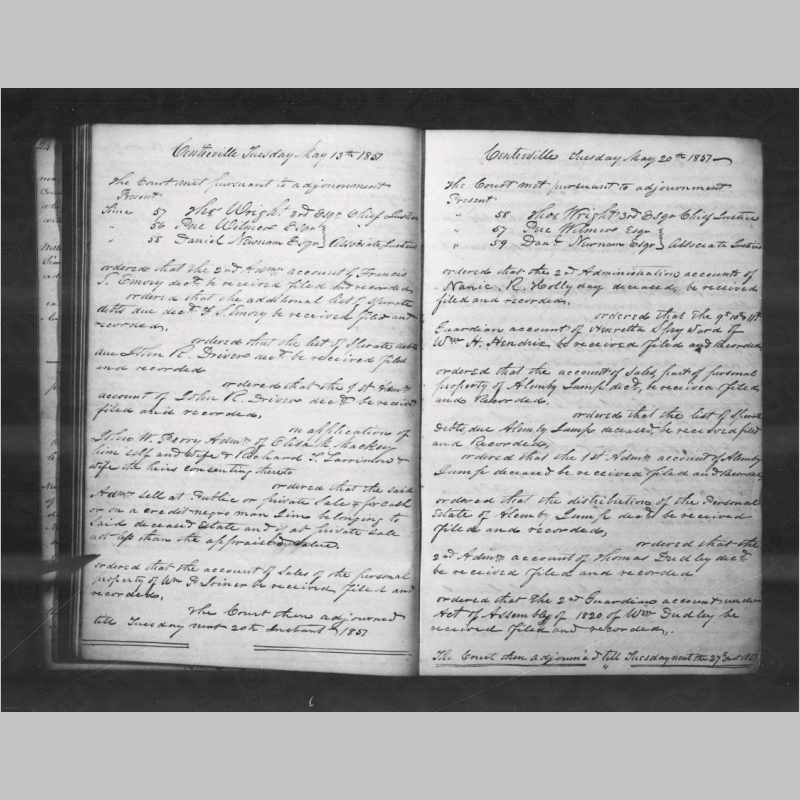 Centreville Tuesday May 13th 1851
The Court met pursuant to adjournment
Present
Time 57 Thos Wright 3rd Esqr Chief Justice
" 56 Pue Wilmer Esqr }
" 55 Daniel Newnam Esqr } Associate Justices
ordered that the 2nd Admn account of Francis
T. Emory decd be received filed and recorded,
ordered that the additional list of Sperate
debts due decd F. T. Emory be received filed and
recorded,
ordered that the list of Sperate debts
due John R. Driver decd be received filed
and recorded
ordered that the 1st Admn
account of John R. Driver decd be received
filed and recorded,
on application of
John W. Perry Admr of Mackey
him self and Wife & Richard T. Larrimore &
Wife the heirs consenting thereto
ordered that the said
Admr sell at Public or private Sale & for cash
or on a credit negro man belonging to
Said deceased Estate and if at private Sale
not less than the appraised value.
ordered that the account of Sales of the personal
property of Wm be received filed and
recorded,
The Court then adjourned
till Tuesday next 20th Instant 1851
Centreville Tuesday May 20th 1851
The Court met pursuant to adjournment
Present
" 58 Thos Wright 3rd Esqr Chief Justice
" 57 Pue Wilmer Esqr }
" 59 Danl Newnam Esqr } Associate Justices
ordered that the 2nd Administration accounts of
R. Hollyday deceased, be received
filed and recorded,
ordered that the 9th 10th & 11th
Guardian account of Henretta Spry Ward of
Wm H. Hendrix, be received filed and Recorded
ordered that the account of Sales, part of personal
property of Alemby Jump decd, be received filed
and Recorded,
ordered that the list of Sperate
Debts, due Alemby Jump deceased, be received filed
and Recorded,
ordered that the 1st Admn account of Alemby
Jump deceased be received filed and Recorded
ordered that the distribution of the Personal
Estate of Alemby Jump decd be received
filed and recorded,
ordered that the
2nd Admn account of Thomas Dudley decd
be received filed and recorded
ordered that the 2nd Guardian account under
Act of Assembly of 1820 of Wm Dudley be
received filed and recorded,
The Court then adjourn'd till Tuesday next the 27th Inst 1851